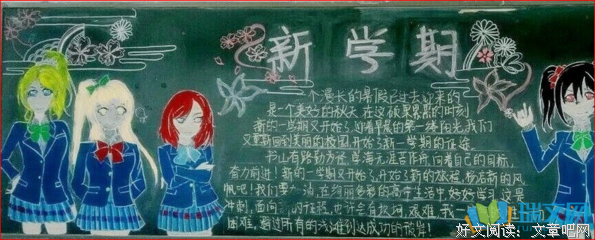 新学期
一个漫长的暑假已过去 迎来的
是一个美好的秋天 在这硕果累累的时刻
新的一学期又开始了 迎着早晨的第一缕阳光 我们
又重新回到美丽的校园 开始了新一学期的征途
书山有路勤为径 学海无涯苦作舟 向着自己的目标,
奋力前进! 新的一学期又开始了 开始了新的旅程, 扬起新的风
帆吧! 我们要加油, 在绚丽多彩的高中生活中好好学习 这是
冲刺, 面向 的征程, 也许会有坎坷, 艰难, 我
困难, 通过所有的 到达成功的彼岸!
瑞文网
好文阅读: 文章吧网